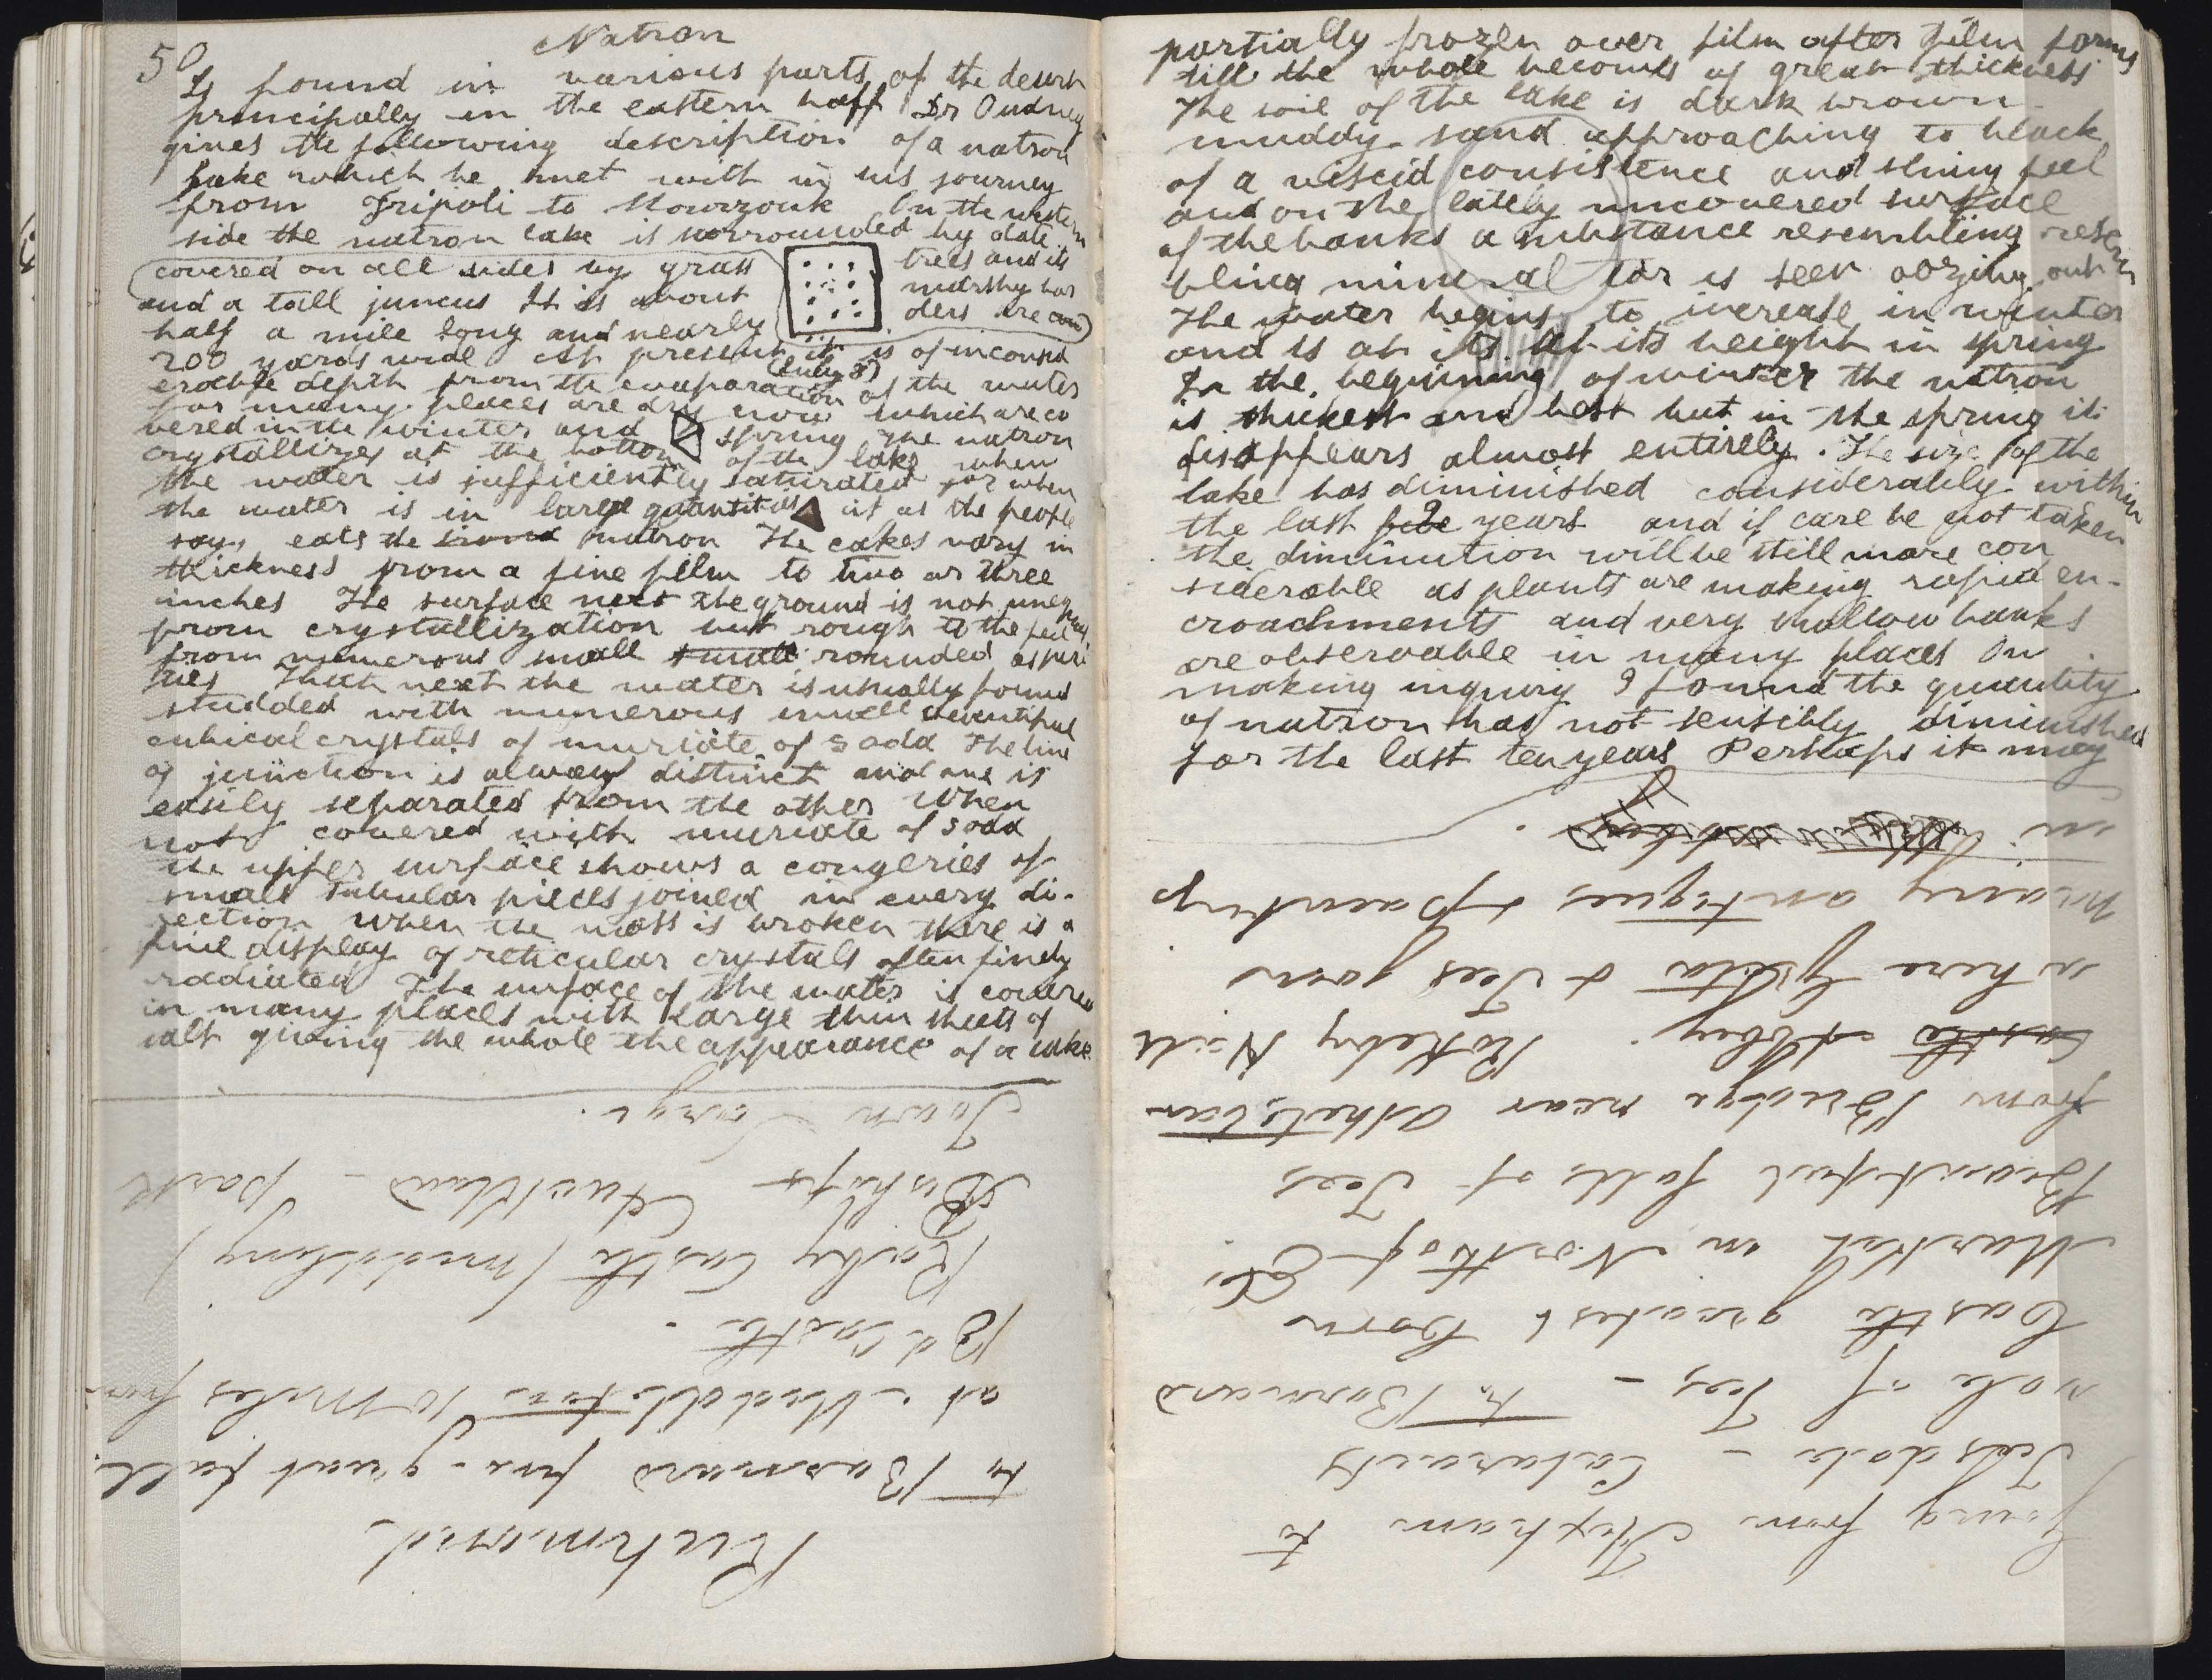 50 Natron
Is found in various parts of the desert
principally in the eastern half Dr Oudney
gives the following description of a natron
lake which he met with in his journey
from Tripoli to Mourzouk On the western
side the natron lake is sorrounded by date
trees and its
marshy bor
ders are cov
covered on all sides by grass
and a tall juncus It is about
half a mile long and nearly
200 yards wide At present it is of inconsid
(July 8)
erable depth from the evaporation of the water
for many places are dry now which are co
vered in the winter and spring The natron
crystallizes at the bottom of the lake when
the water is sufficiently saturated for when
the water is in large quantities it as the people
say, eats the natron The cakes vary in
thickness from a fine film to two or three
inches The surface next the ground is not unequal
from crystallization but rough to the feel
from numerous small small rounded asperi
ties That next the water is usually found
studded with numerous small beautiful
cubical crystals of muriate of soda The line
of junction is always distinct and one is
easily separated from the other When
not covered with muriate of soda
the upper surface shows a congeries of
small tabular pieces joined in every di-
rection when the mass is broken there is a
fine display of reticular crystals often finely
radiated The surface of the water is covered
in many places with large thin sheets of
salt giving the whole the appearance of a lake
partially frozen over film after film forms
till the whole becomes of great thickness
The soil of the lake is dark brown
muddy sand approaching to black
of a viscid consistence and slimy feel
and on the lately uncovered surface
of the banks a substance resembling resem
bling mineral tar is seen oozing out
The water begins to increase in winter
and is at its at its height in spring
In the beginning of winter the natron
is thickest and best but in the spring it
disappears almost entirely. The size of the
lake has diminished considerably within
the last years and if care be not taken
the diminution will be still more con
siderable as plants are making rapid en-
croachments and very shallow banks
are observable in many places On
making inquiry I found the quantity
of natron has not sensibly diminished
for the last ten years Perhaps it may
going from Hexham to
Teesdale - Cataracts
vale of Tees - to Barnard
Castle greatest Corn
Market in North of E.
Beautiful falls of Tees
from Bridge near Athelstan
Castle Abbey. Rokeby Hall
where Greta & Tees join
many antiques & Paintings
in
Richmond
to Barnard fine - great fall
at Middleton 10 Miles from
Bd Castle.
Raby Castle (middling)
Bishops Auckland - park
Town Large.